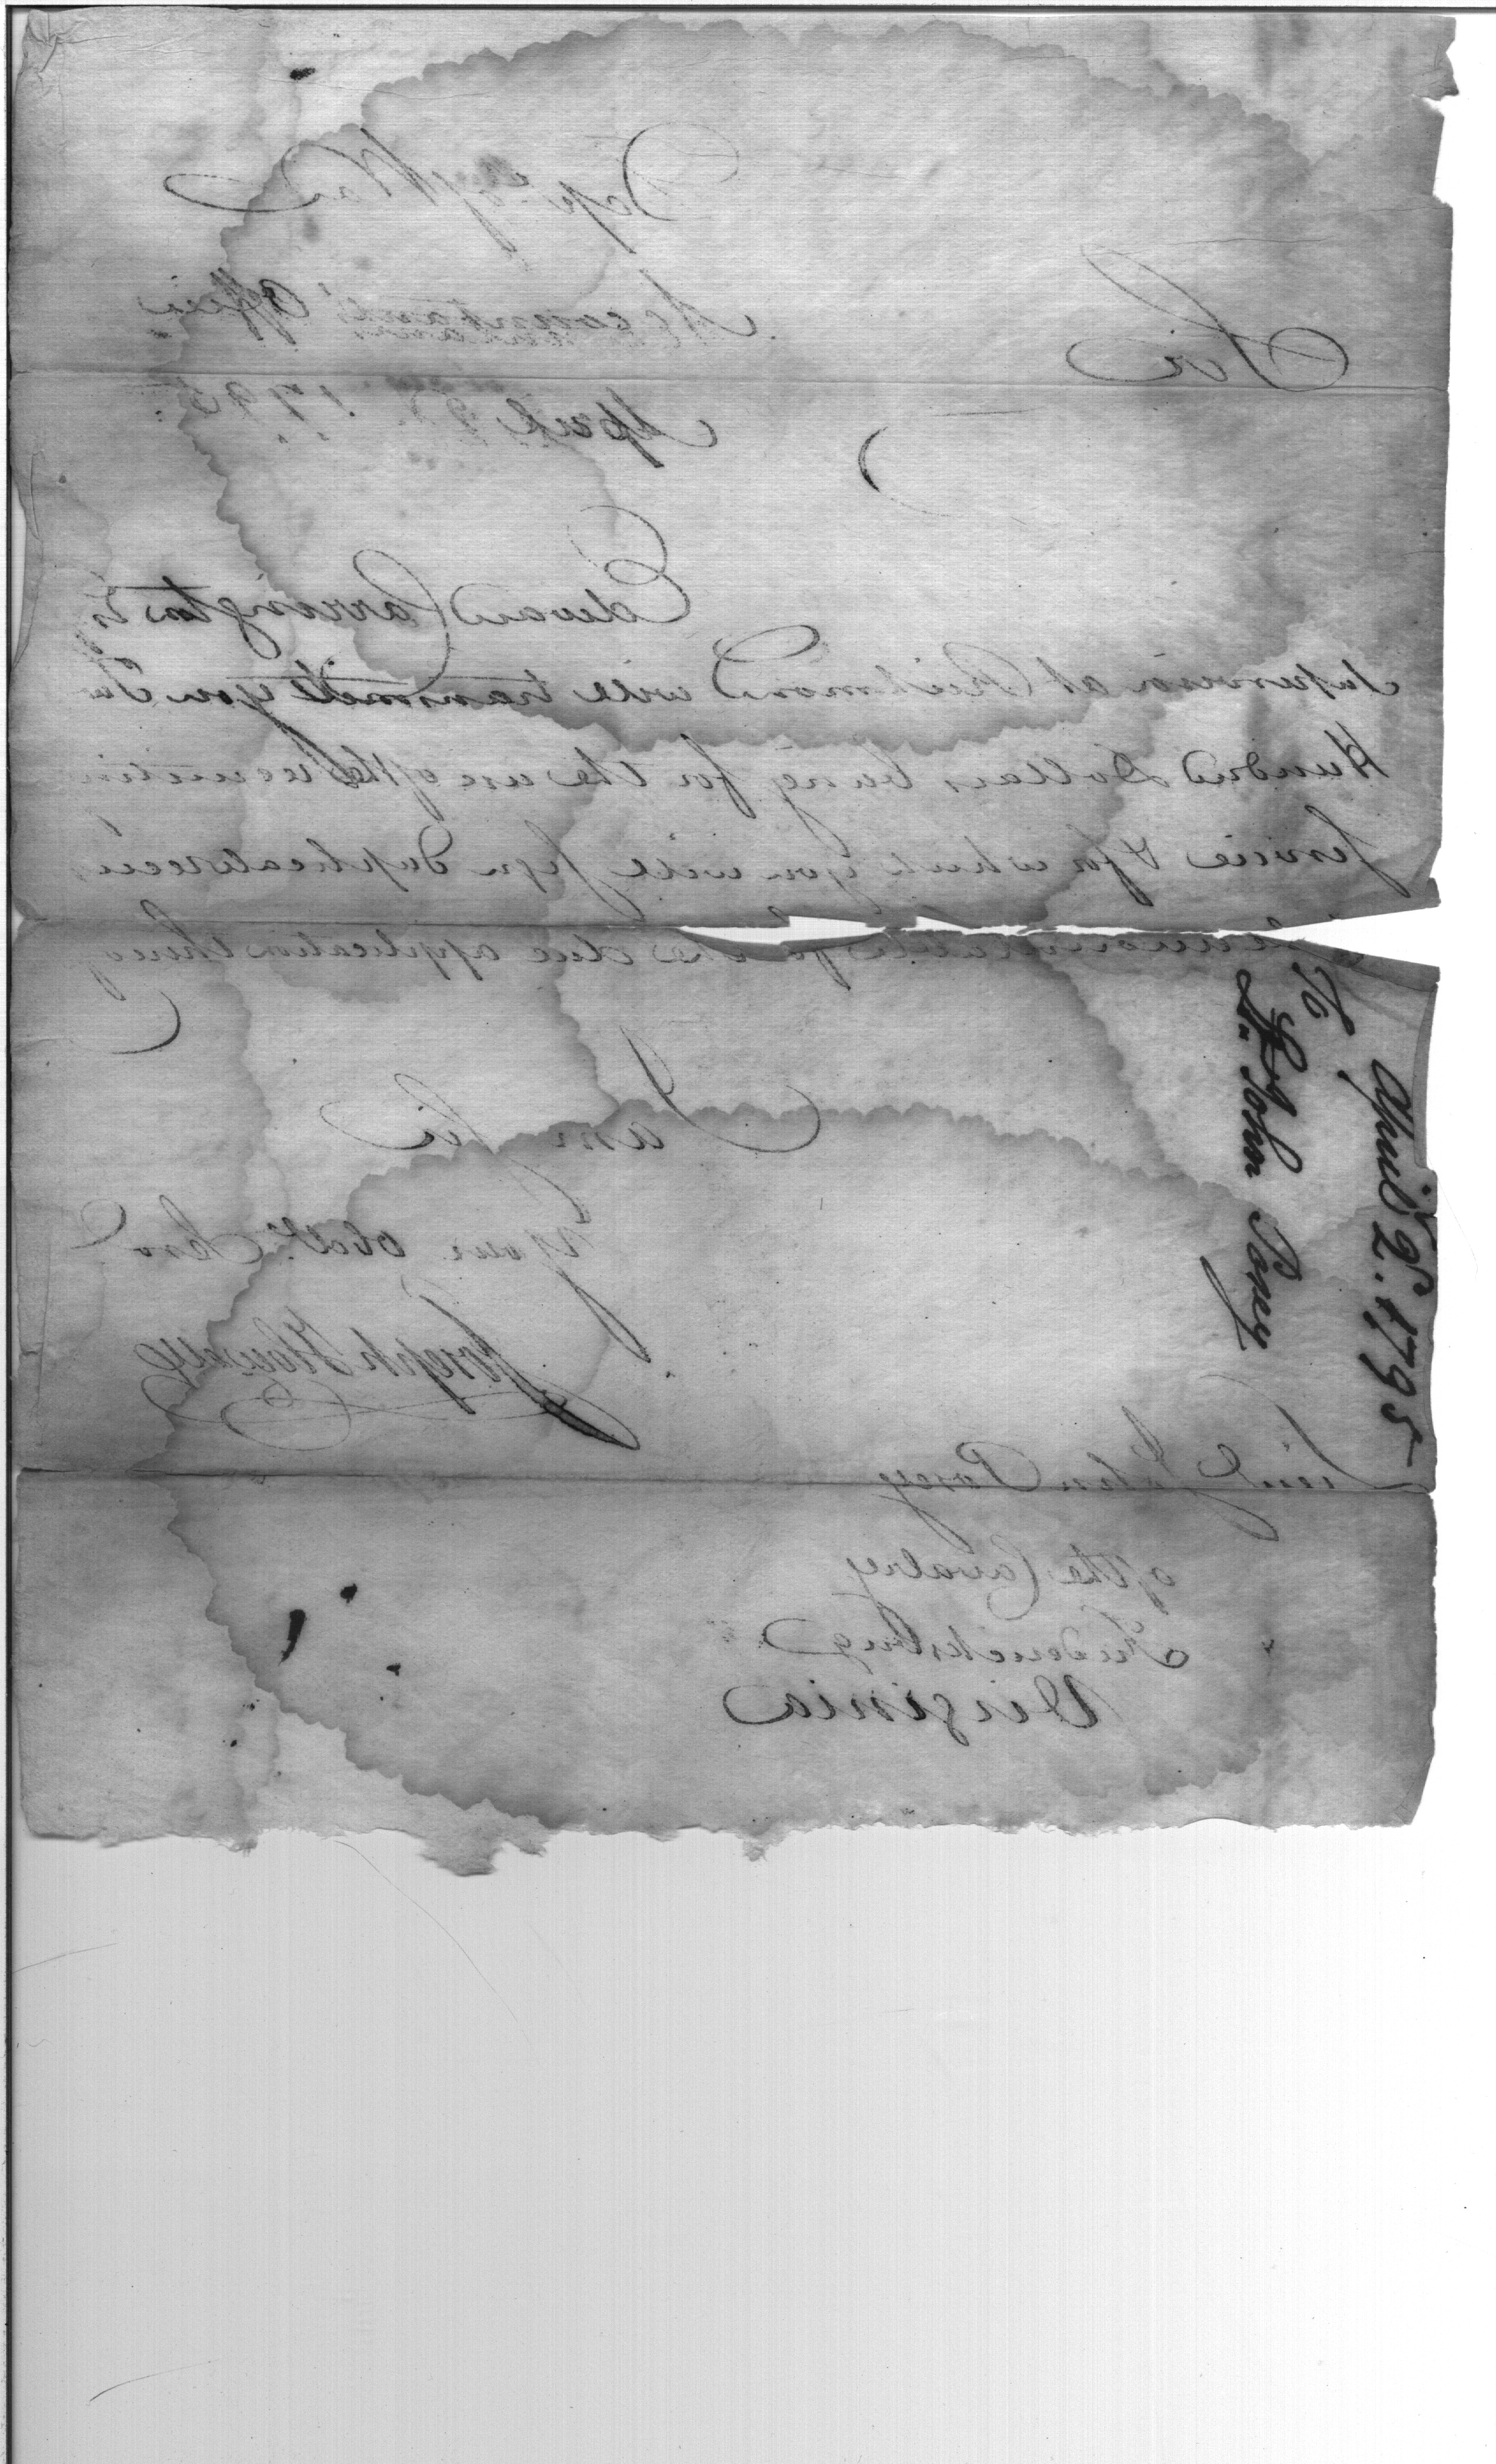 Dep.t of War
Accountants Office
April 2d. 1795
Sir
Edward Carrington Esqr
Supervisor at Richmond will transmit you Two
Hundred Dollars being for the use of the recruiting
Service & for which you will sign duplicate receipts
accountable for the due application thereof
I am Sir
Your obed.t Serv
Joseph Howell
Lieut John Posey
of the Cavalry
Fredericksburg
Virginia
April 2d. 1795
To
John Posey